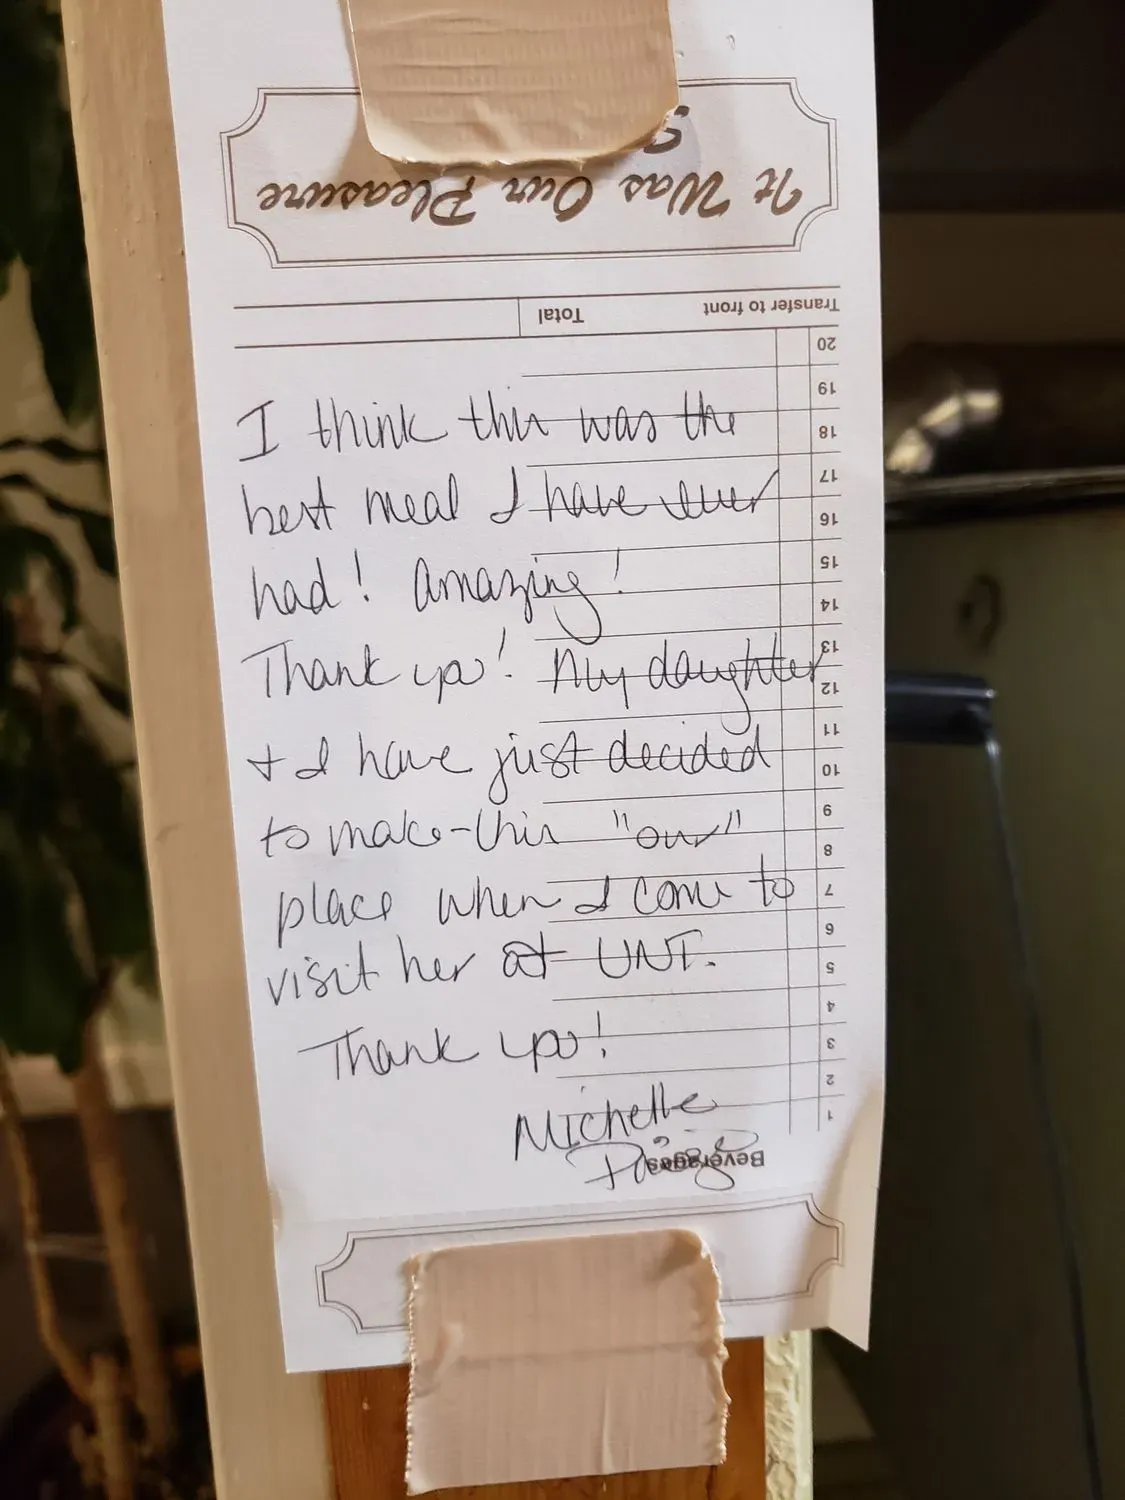 It Was Our Pleasure
Transfer to front Total
20
19
18
17
16
15
14
13
12
11
10
9
8
7
6
5
4
3
2
1
Beverages
I think this was the
best meal I have ever
had! Amazing!
Thank you! My daughter
+ I have just decided
to make this "our"
place when I come to
visit her at UNT.
Thank you!
Michelle